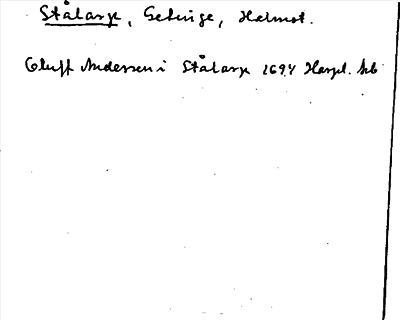 Stålarye, Getinge, Halmst.
Oluff Andersen i Stålarye 1694 Harpl. kb